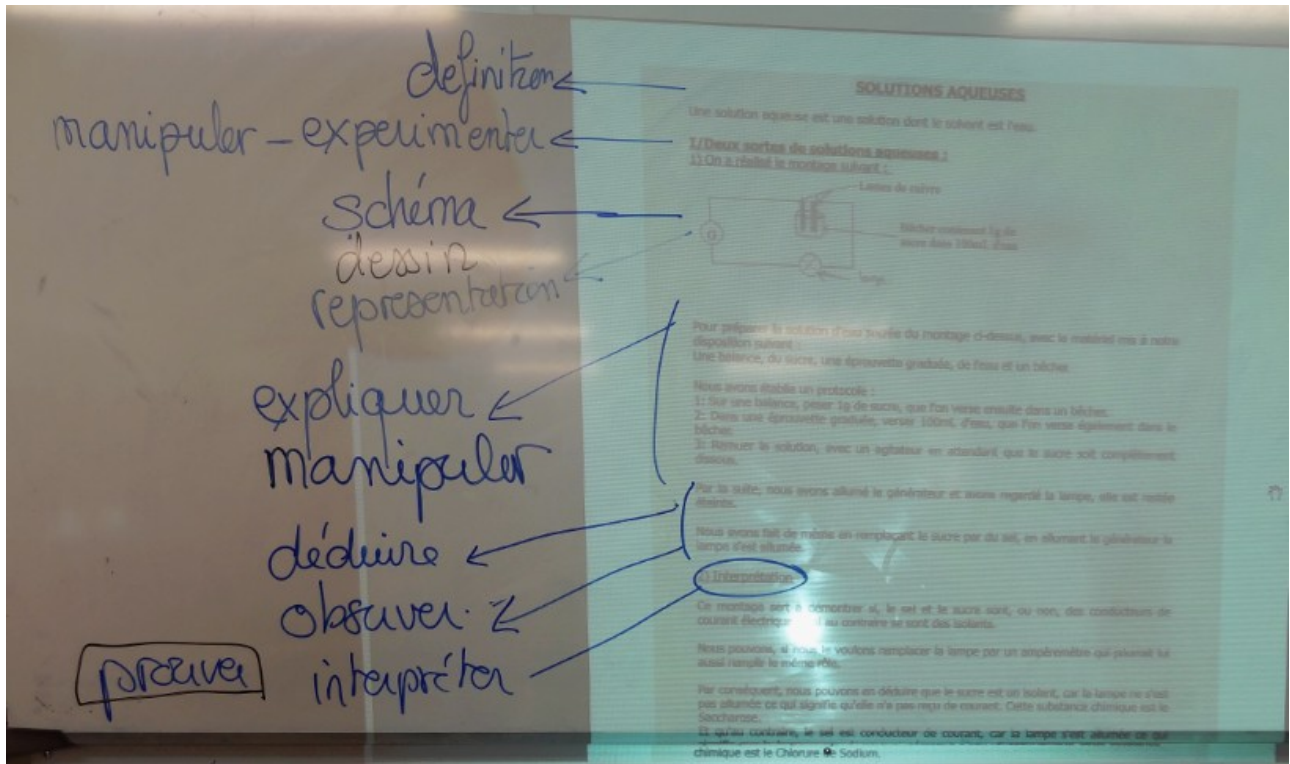 definition
manipuler - experimenter
schéma
dessin
representation
expliquer
manipuler
déduire
observer.
interpréter
prouver
SOLUTIONS AQUEUSES
Une solution aqueuse est une solution dont le solvant est l'eau.
I/Deux sortes de solutions aqueuses :
1) On a réalisé le montage suivant :
Lames de cuivre
Bêcher contenant 1g de
sucre dans 100mL d'eau
lampe
G
Pour préparer la solution d'eau sucrée du montage ci-dessus, avec le matériel mis à notre
disposition suivant :
Une balance, du sucre, une éprouvette graduée, de l'eau et un bêcher.
Nous avons établis un protocole :
1: Sur une balance, peser 1g de sucre, que l'on verse ensuite dans un bêcher.
2: Dans une éprouvette graduée, verser 100mL d'eau, que l'on verse également dans le
bêcher.
3: Remuer la solution, avec un agitateur en attendant que le sucre soit complètement
dissous.
Par la suite, nous avons allumé le générateur et avons regardé la lampe, elle est restée
éteinte.
Nous avons fait de même en remplaçant le sucre par du sel, en allumant le générateur la
lampe s'est allumée.
2) Interprétation
Ce montage sert à démontrer si, le sel et le sucre sont, ou non, des conducteurs de
courant électrique au contraire se sont des isolants.
Nous pouvons, si nous le voulons remplacer la lampe par un ampèremètre qui pourrait lui
aussi remplir le même rôle.
Par conséquent, nous pouvons en déduire que le sucre est un isolant, car la lampe ne s'est
pas allumée ce qui signifie qu'elle n'a pas reçu de courant. Cette substance chimique est le
Saccharose.
Et qu'au contraire, le sel est conducteur de courant, car la lampe s'est allumée ce qui
chimique est le Chlorure de Sodium.